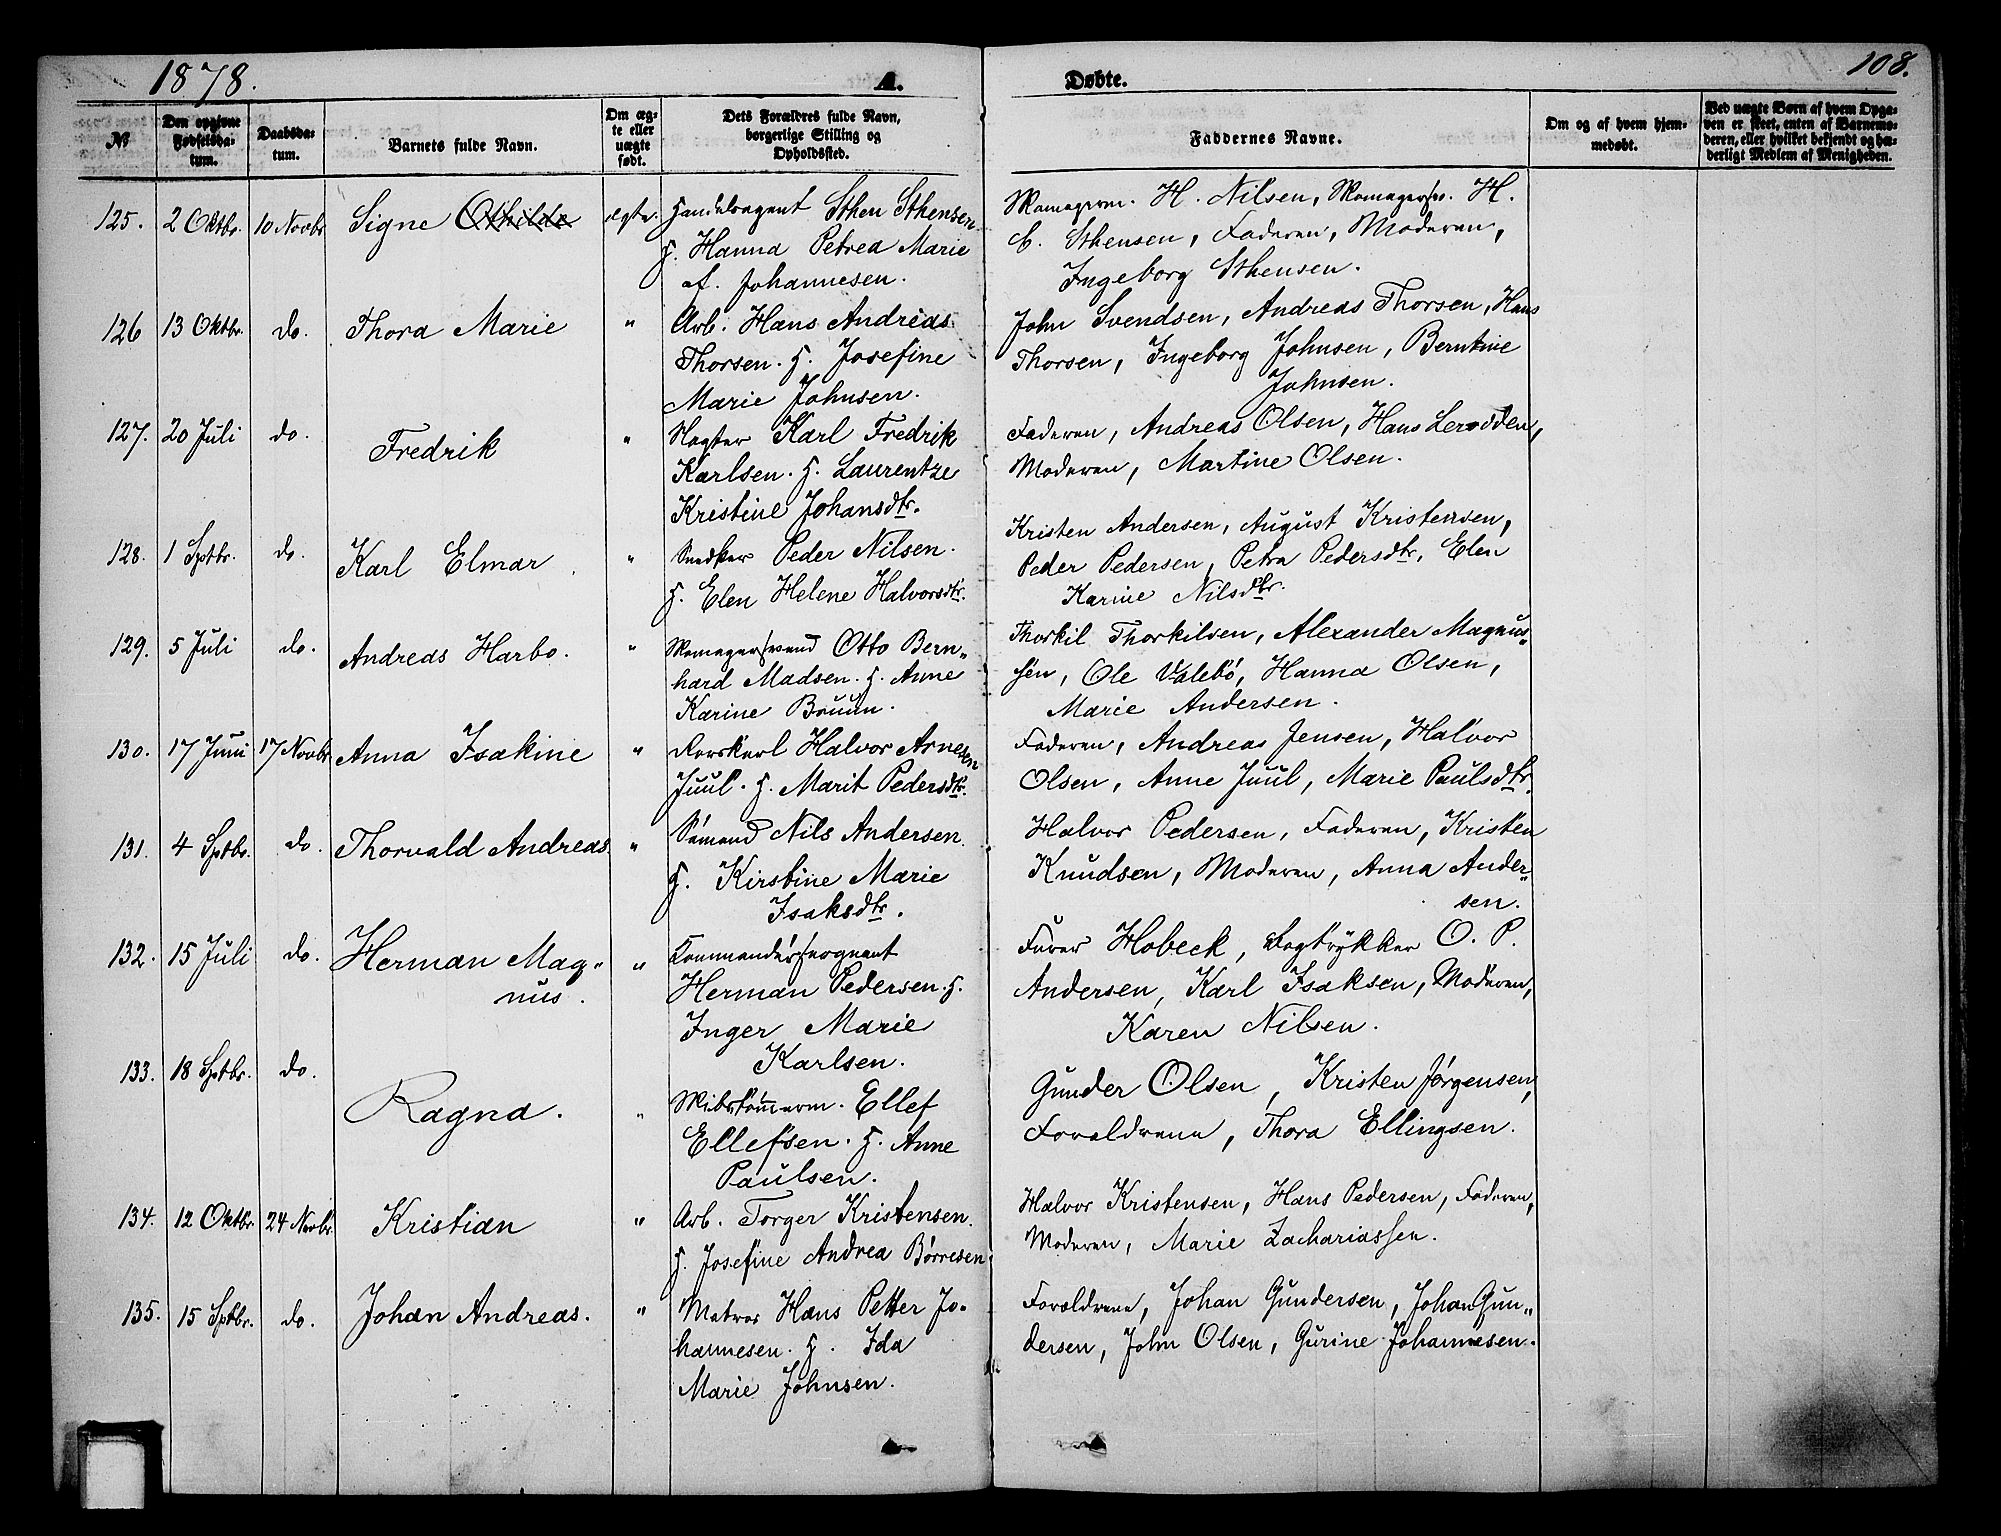 1878.
A.
Døbte.
108.
No
Den opgivne Fødselsdatum.
Daabsdatum.
Barnets fulde Navn.
Om ægte eller uægte født.
Dets Forældres fulde Navn, borgerlige Stilling og Opholdsted.
Faddernes Navne.
Om og af hvem hjemmedøbt.
Ved uægte Børn af hvem Opgaven er skeet, enten af Barnemoderen, eller hvilket bekjendt og hæderligt Medlem af Menigheden.
125. 2 Oktbr. 10 Novbr Signe Othilde ægte. Handelsagent Sthen Sthensen
H. Hanna Petrea Marie
af. Johannesen.
H. Nilsen, H.
C. Sthensen, Faderen, Moderen,
Ingeborg Sthensen.
126 13 Oktbr. do. Thora Marie " Arb. Hans Andreas
Thorsen. H. Josefine
Marie Johnsen.
John Svendsen, Andreas Thorsen, Hans
Thorsen, Ingeborg Johnsen, Berntine
Johnsen.
127. 20 Juli do. Fredrik " Slagter Karl Fredrik
Karlsen. H. Laurentze
Kristine Johansdtr.
Faderen, Andreas Olsen, Hans
Moderen, Martine Olsen.
128. 1 Sptbr. do. Karl Elmar " Snedker Peder Nilsen.
H. Elen Helene Halvorsdtr.
Kristen Andersen, August Kristensen,
Peder Pedersen, Petra Pedersdtr, Elen
Karine Nilsdtr.
129. 5 Juli do. Andreas Harbo. " Skomagersvend Otto Bern„
hard Madsen. H. Anne
Karine Bruun.
Thorkil Thorkilsen, Alexander Magnus„
sen, Ole Valebö, Hanna Olsen,
Marie Andersen.
130. 17 Juni 17 Novbr Anna Isakine " Rorskarl Halvor Arnesen
Juul. H. Marit Pedersdtr.
Faderen, Andreas Jensen, Halvor
Olsen, Anne Juul, Marie Paulsdtr.
131. 4 Sptbr. do. Thorvald Andreas. " Sömand Nils Andersen.
H. Kirstine Marie
Isaksdtr.
Halvor Pedersen, Faderen, Kristen
Knudsen, Moderen, Anna Ander„
sen.
132. 15 Juli do. Herman Mag„
nus. " Kommandérsergeant
Herman Pedersen. H.
Inger Marie
Karlsen.
Furer Hobeck, Bogtrykker O. P.
Andersen, Karl Isaksen, Moderen,
Karen Nilsen.
133. 18 Sptbr. do. Ragna. " Skibstömerm. Ellef
Ellefsen. H. Anne
Paulsen.
Gunder Olsen, Kristen Jørgensen,
Foraldrene, Thora Ellingsen.
134. 12 Oktbr. 24 Novbr. Kristian " Arb. Torger Kristensen.
H. Josefine Andrea Börresen.
Halvor Kristensen, Hans Pedersen, Faderen,
Moderen, Marie Zachariassen.
135. 15 Sptbr. do. Johan Andreas. " Matros Hans Petter Jo-
hannesen. H. Ida
Marie Johnsen.
Foraldrene, Johan Gundersen, Johan Gun„
dersen, John Olsen, Gurine Johannesen.